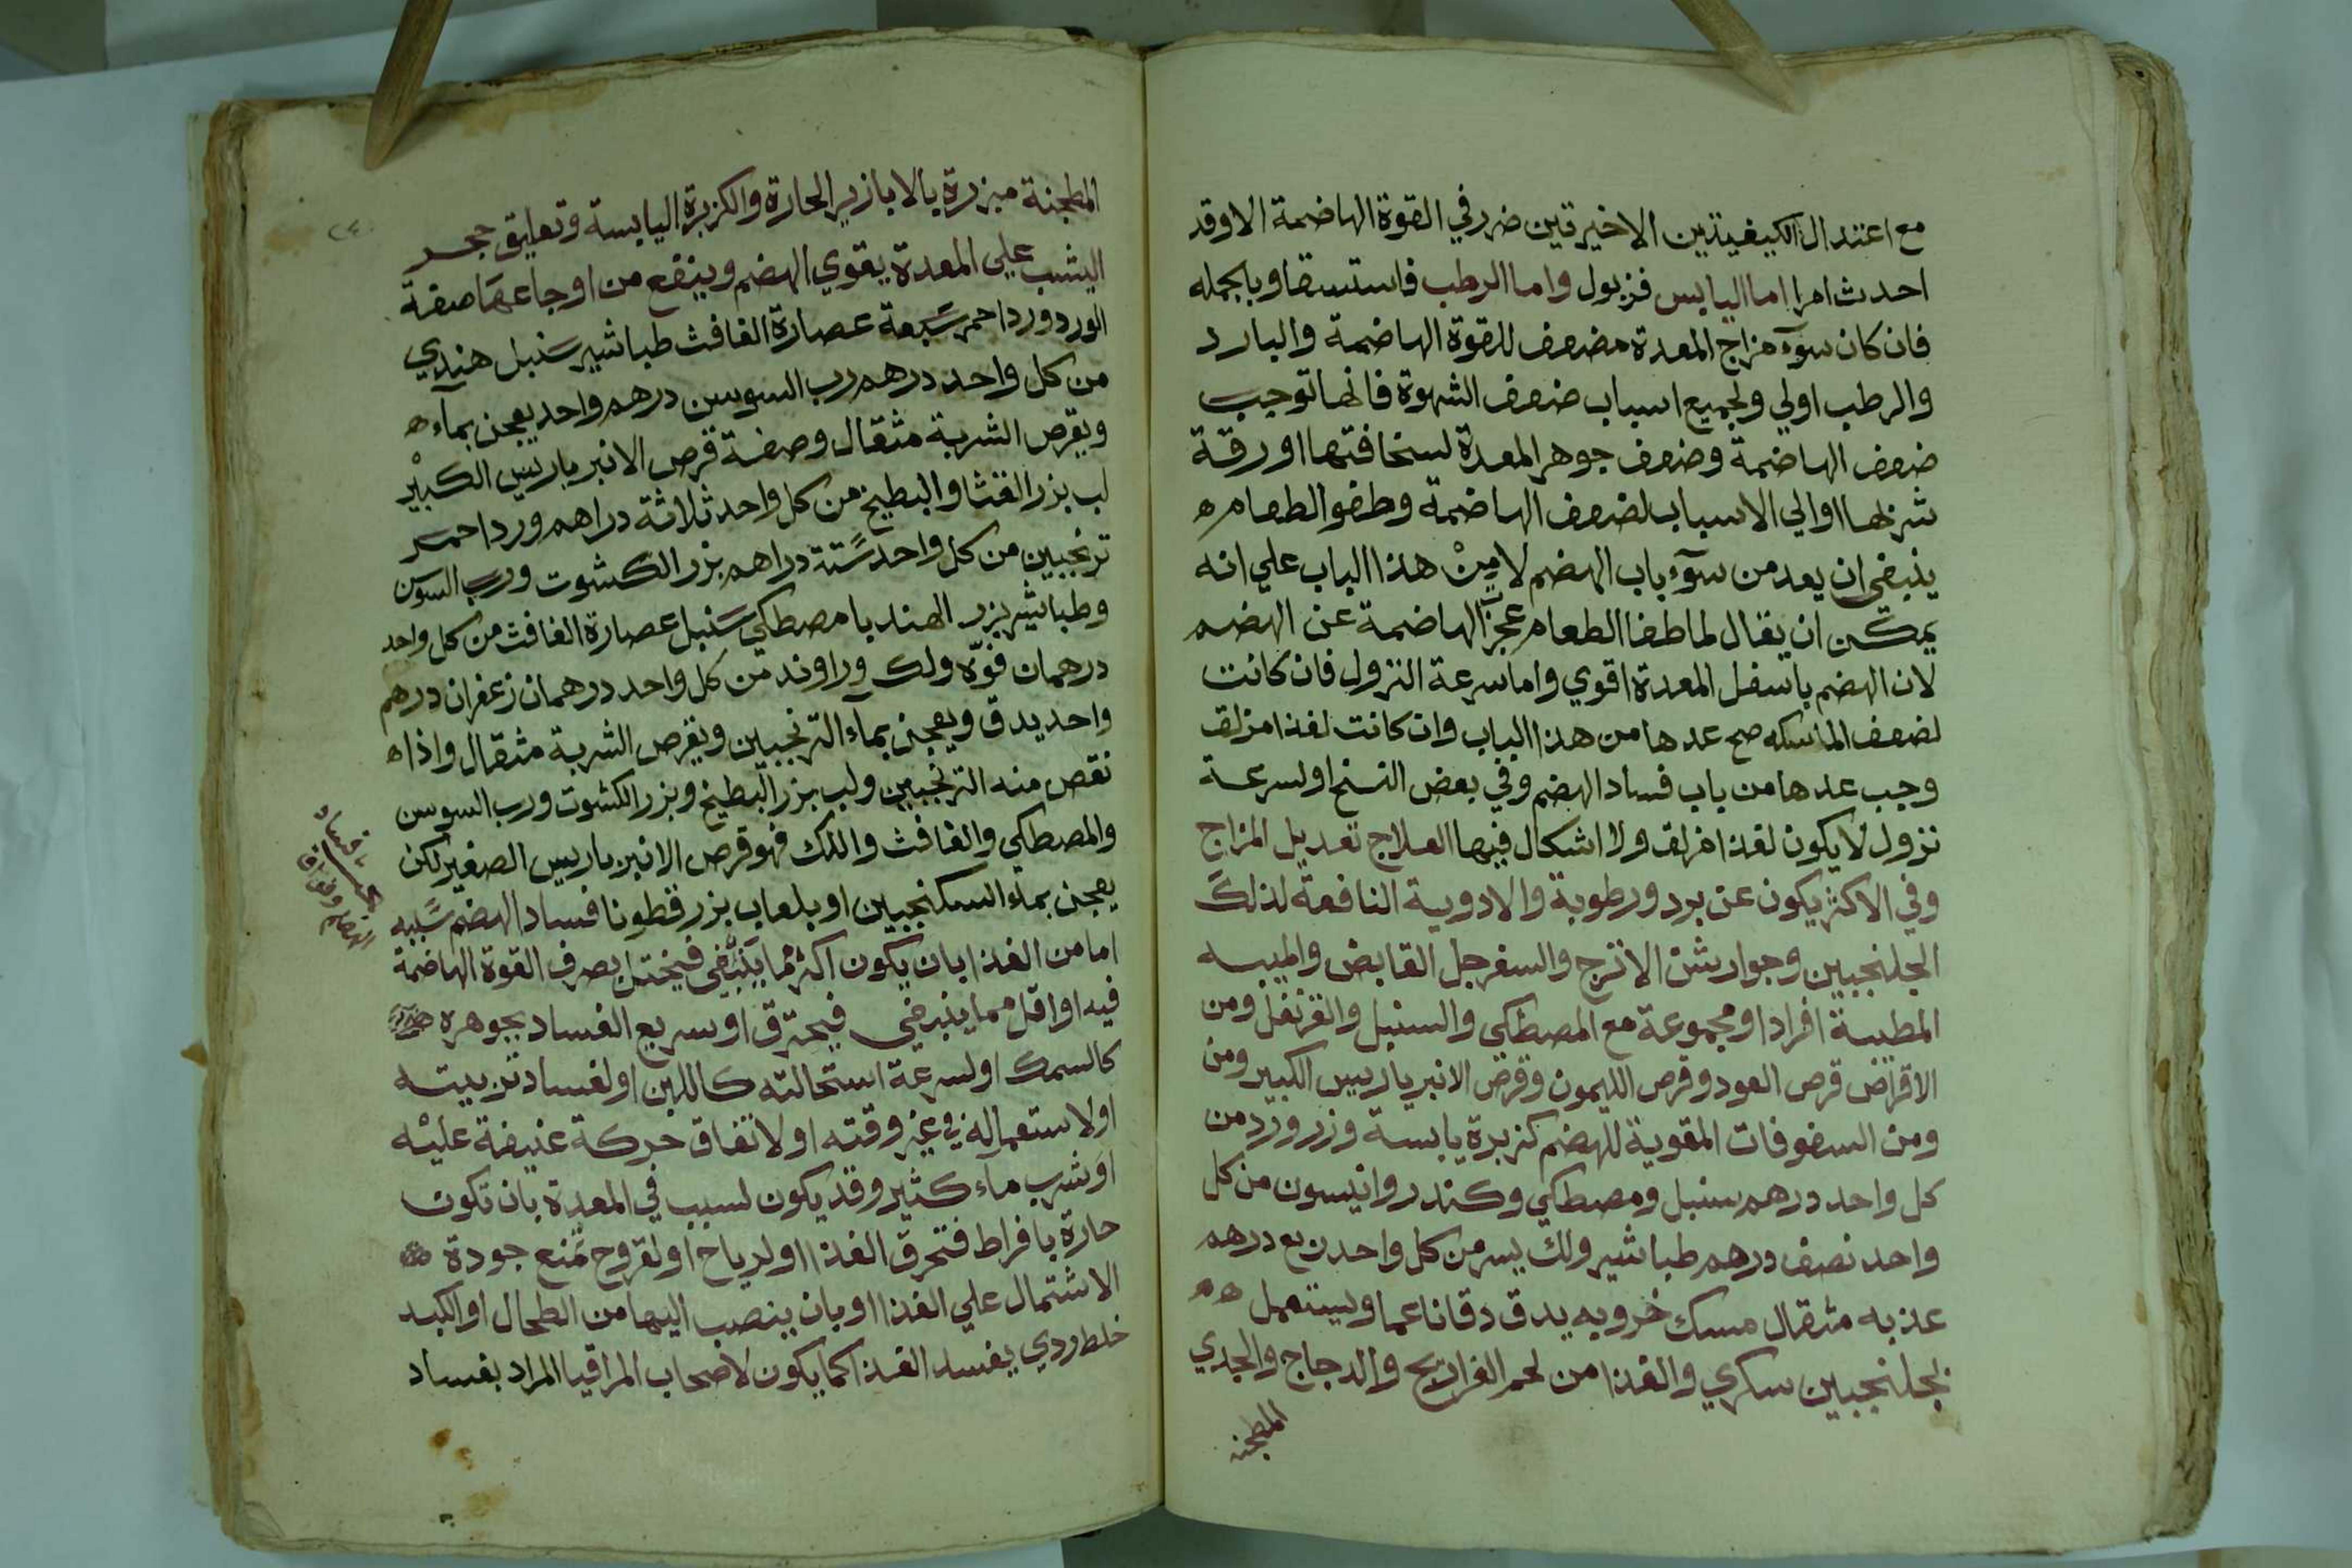 مع اعتدال الكيفيتين الاخيرتين ضرر في القوة الهاضمة الا وقد
احدث امرا اما اليابس فزبول واما الرطب فاستسقا وبالجمله
فان كان سوٓء مزاج المعدة مضعف للقوة الهاضمة والبارد
والرطب اولي ولجميع اسباب ضعف الشهوة فانها توجب
ضعف الهاضمة وضعف جوهر المعدة لسخافتها او رقة
ثربها او الي الاسباب لضعف الهاضمة وطفو الطعام ه
ينبغي ان يعد من سوٓء باب الهضم لا مِنْ هذا الباب علي انه
يمكن ان يقال لما طفا الطعام عجزت الهاضمة عن الهضم
لان الهضم باسفل المعدة اقوي واما سرعة النزول فان كانت
لضعف الماسكه صح عدها من هذا الباب وان كانت لغذا مزلق
وجب عدها من باب فساد الهضم وفي بعض النسخ او لسرعة
نزول لا يكون لغذا مزلق ولا اشكال فيها العلاج تعديل المزاج
وفي الاكثر يكون عن برد ورطوبة والادوية النافعة لذلك
الجلنجبين وجوارشن الاترج والسفرجل القابض والميبه
المطيبة افرادا ومجموعة مع المصطكي والسنبل والقرنفل ومن
الاقراض قرص العود وقرص الليمون وقرض الانبرباريس الكبير ومن
ومن السفوفات المقوية للهضم كزبرة يابسة وزر ورد من
كل واحد درهم سنبل ومصطكي وكندر وانيسون من كل
واحد نصف درهم طباشير ولك بسر من كل واحد ربع درهم
عذبه مثقال مسك خروبه يدق دقا ناعما ويستعمل ه ه
بجلنجبين سكري والغذا من لحم الفراريج والدجاج والجدي
المطجنه
المطجنة مبزرة بالابازير الحارة والكزبرة اليابسة وتعليق حجر
اليشب علي المعدة يقوي الهضم وينفع من اوجاعها صفة
الورد ورد احمر سَبعة عصارة الغافث طباشير سَنبل هندي
من كل واحد درهم رب السوسن درهم واحد يعجن بمآء ه
ويقرص الشربة مثقال وصفة قرص الانبرباريس الكبيْر
لب بزر القثا والبطيخ من كل واحد ثلاثة دراهم ورد احمر
ترنجبين من كل واحد ستة دراهم بزر الكشوت ورب السوسن
وطباشير بزر الهندبا مصطكي سَنبل عصارة الغافث من كل واحد
درهمان فوّه ولك وراوند من كل واحد درهمان زعفران درهم
واحد يدق ويعجن بمآء الترنجبين ويقرص الشربة مثقال واذا ه
نقص منه الترنجبين ولب بزر البطيخ وبزر الكشوت ورب السوسن
والمصطكي والغافث واللك فهو قرص الانبرباريس الصغير لكن
يعجن بمآء السكنجبين او بلعاب بزر قطونا فساد الهضم سَببه
اما من الغذا بان يكون اكثر مما ينبغي فيختل تصرف القوة الهاضمة
فيه او اقل مما ينبغي فيحترق او سريع الفساد بجوهره
كالسمك او لسرعة استحالته كاللبن او لفساد ترتيبه
او لاستعماله في غير وقته او لاتفاق حركة عنيفة عليْه
اوَ شرب مآء كثير وقد يكون لسبب في المعدة بان تكون
حارة بافراط فتحرق الغذا او لرياح او لقروح تمنع جودة
الاشتمال علي الغذا او بان ينصب اليها من الطحال او الكبد
خلط ردي يفسد الغذا كما يكون لاضحاب المراقيا المراد بفساد
فساد
الهضم